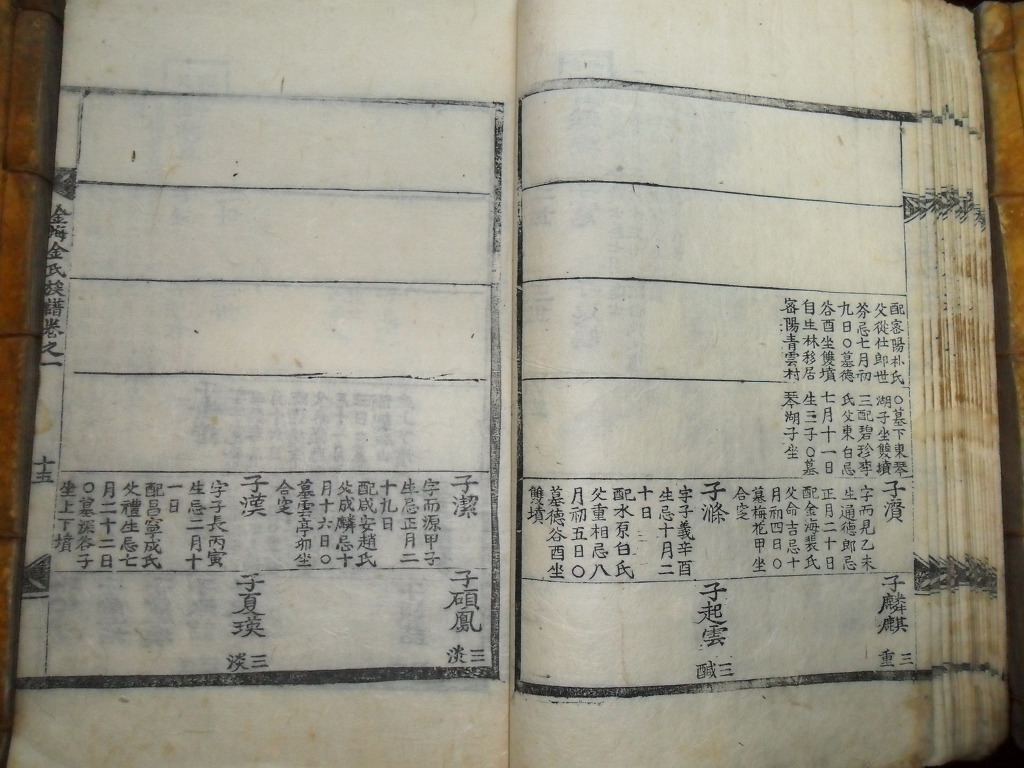 配密陽朴氏
父從仕郎世
芬忌七月初
九日〇墓德
谷酉坐雙墳
自生林移居
密陽靑雲村
〇墓下東琴
湖子坐雙墳
三配碧珍李
氏父東白忌
七月十一日
生三子〇墓
琴湖子坐
子濱
字而見乙未
生通德郎忌
正月二十日
配金海裴氏
父命吉忌十
月初四日〇
墓梅花甲坐
合窆
子滌
字子義辛酉
生忌十月二
十日
配水原白氏
父重相忌八
月初五日〇
墓德谷酉坐
雙墳
子麟麒
三重
子起雲
三醎
子潔
字而源甲子
生忌正月二
十九日
配咸安趙氏
父成麟忌十
月十六日〇
墓雲亭卯坐
合窆
子漢
字子長丙寅
生忌二月十
一日
配昌寧成氏
父禮生忌七
月二十二日
〇墓深谷子
坐上下墳
子碩鳳
三淡
子夏瑛
三淡
金海金氏族譜卷之一
十五